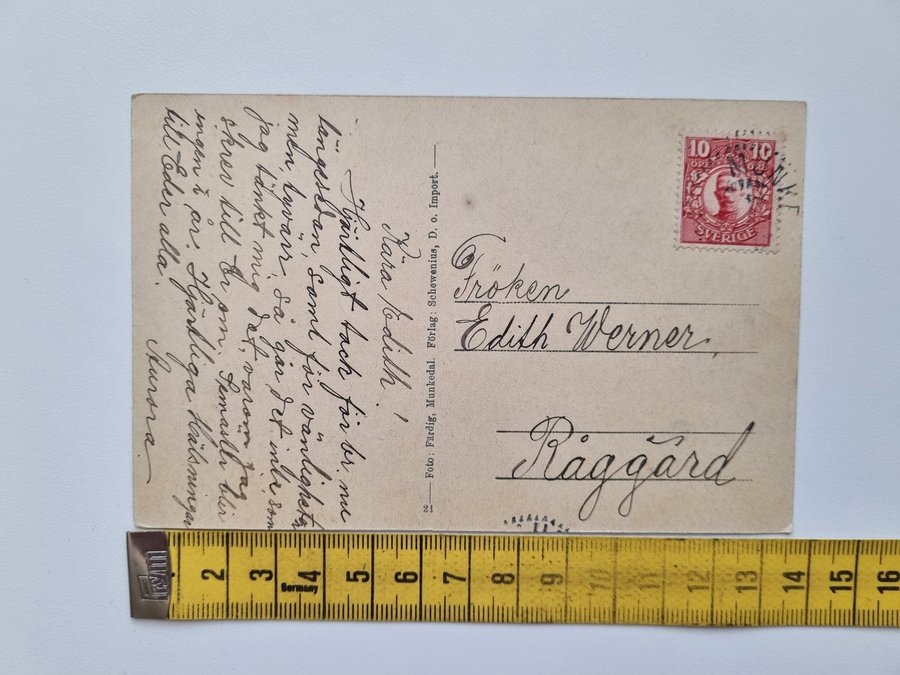 Kära Edith!
Hjärtligt tack för br nu
längesedan, samt för vänligheten
men, tyvärr så går det inte, som
jag tänkt mig det, varom jag
skrev till Er om. Semester blir
ingen i år. Hjärtliga Hälsningar
till Eder alla.
Aurora
21 — Foto: Färdig, Munkedal. Förlag: Schewenius, D. o. Import. —
10 10
ÖRE
SVERIGE
Fröken
Edith Werner.
Råggärd
1 2 3 4 5 6 7 8 9 10 11 12 13 14 15 16
Germany